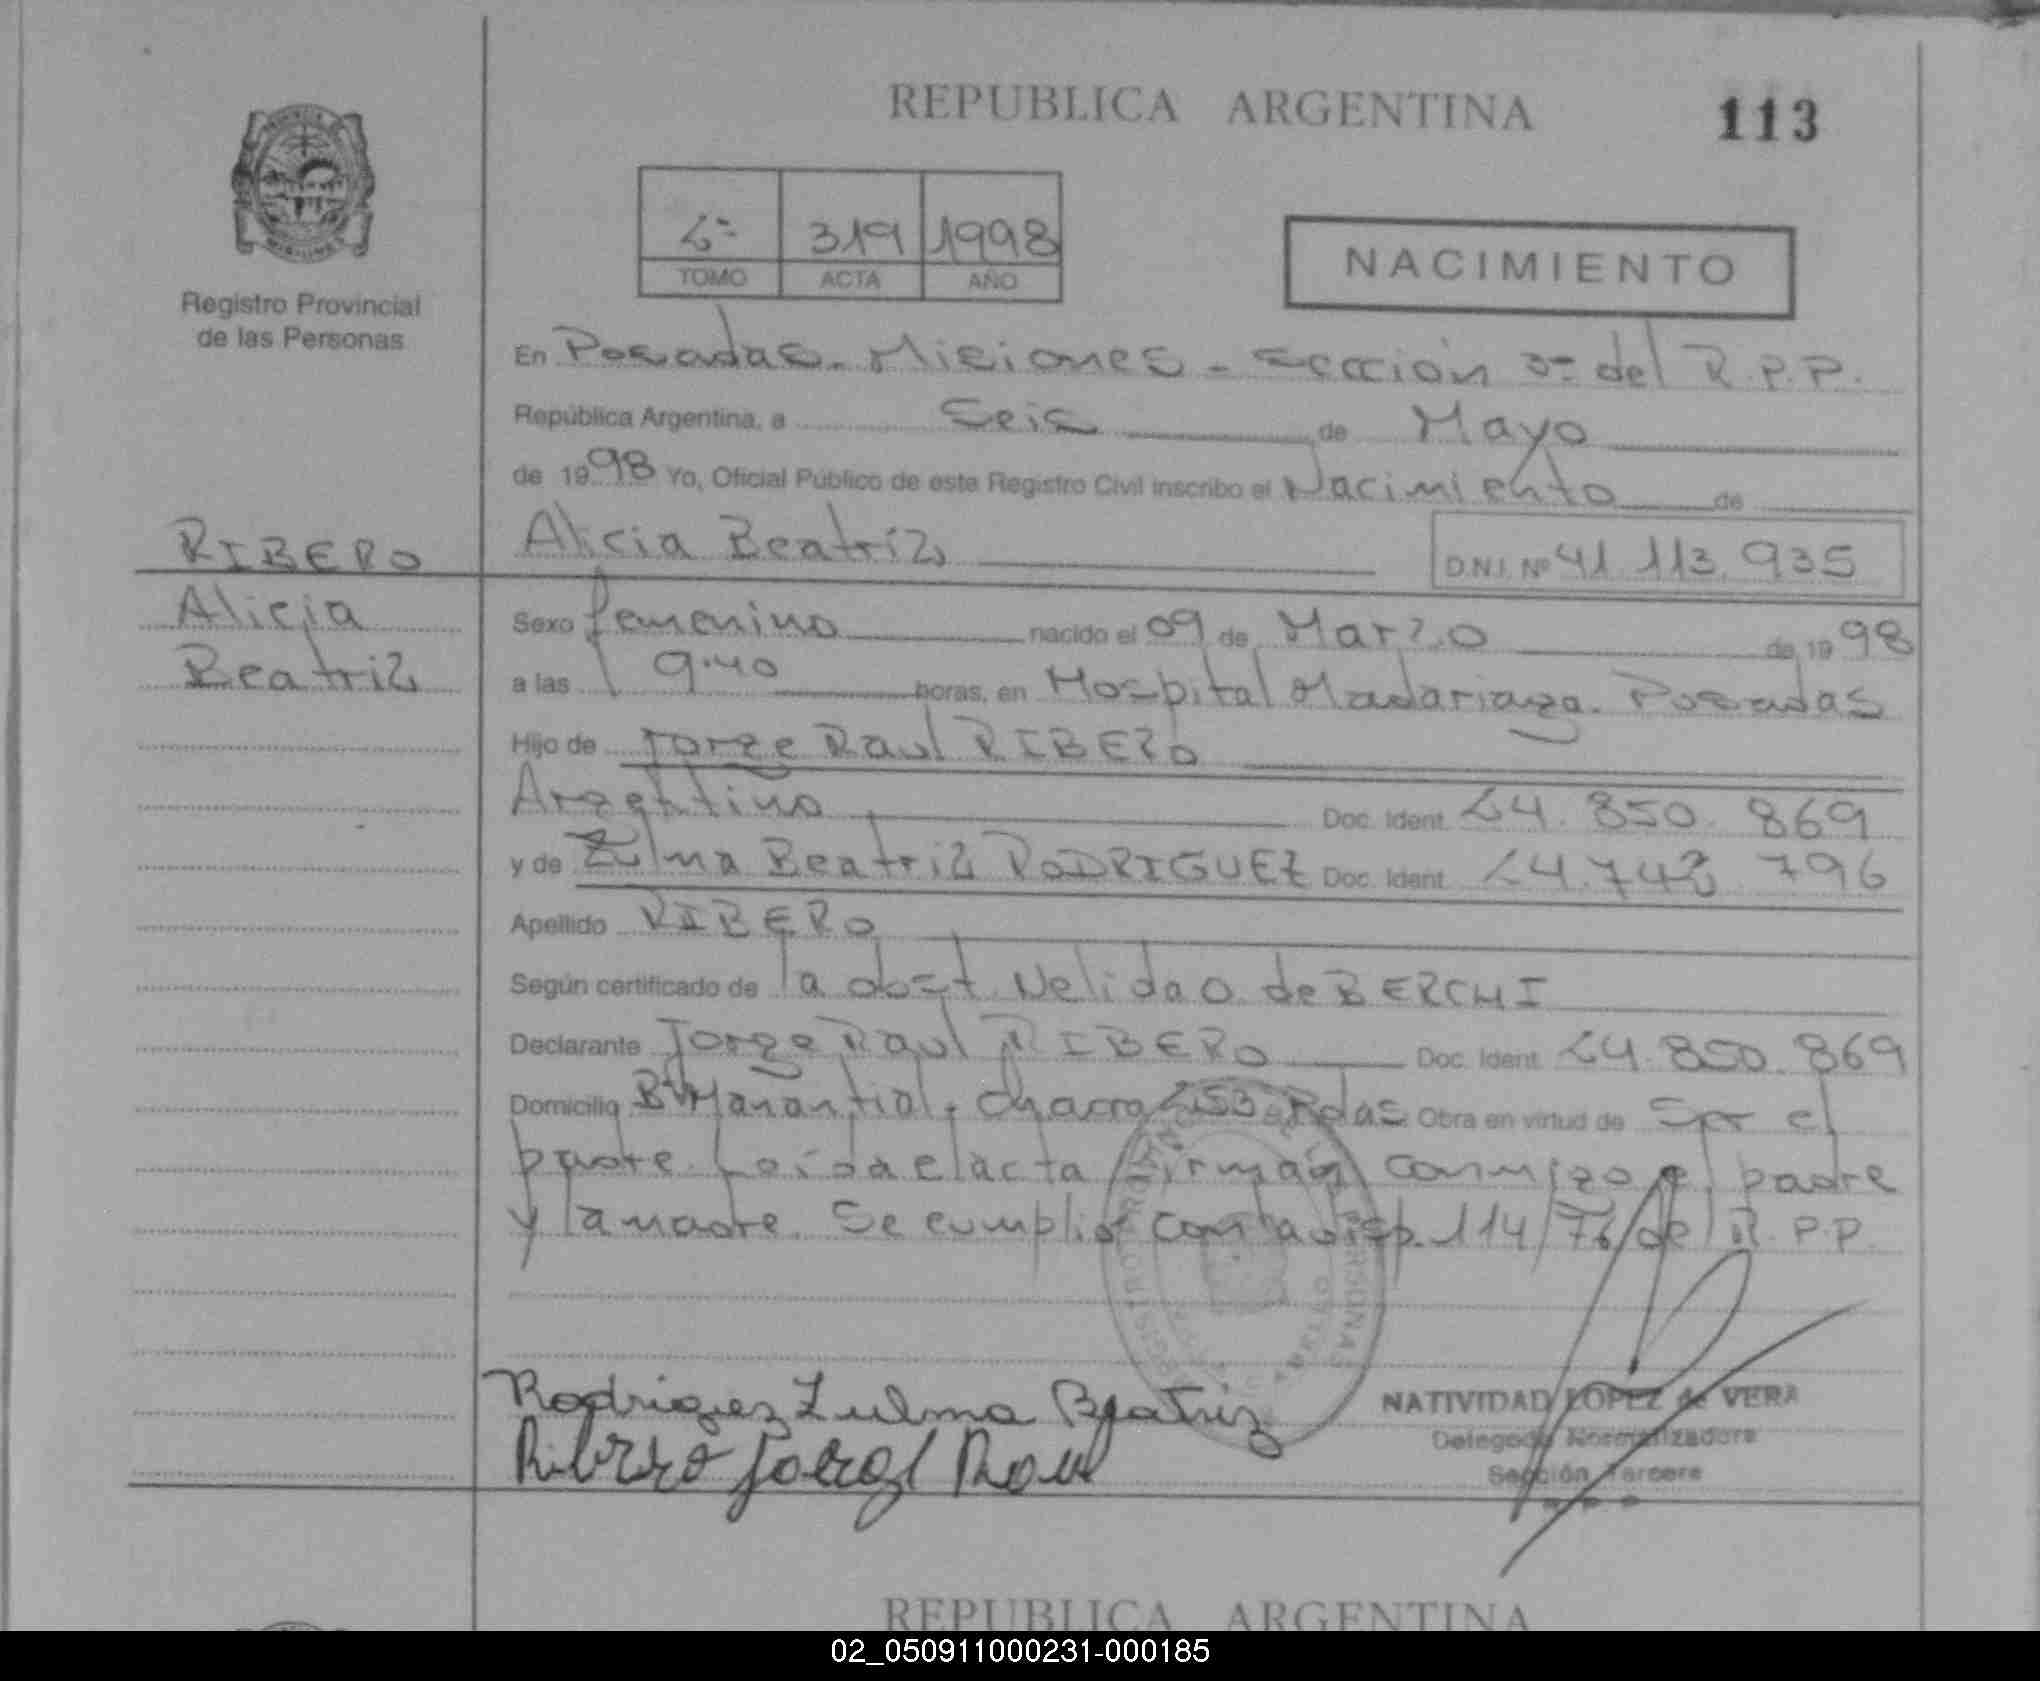 REPUBLICA ARGENTINA
113
2º 319 1998
TOMO ACTA AÑO
NACIMIENTO
Registro Provincial
de las Personas
En Posadas. Misiones - sección 3º del R.P.P.
República Argentina, a Seis de Mayo
de 1998 Yo, Oficial Público de este Registro Civil inscribo el Nacimiento de
RIBERO
Alicia Beatriz
D.N.I. Nº 41.113.935
Alicia
Beatriz
Sexo femenino nacido el 09 de Marzo de 1998
a las 9.40 horas, en Hospital Madariaga. Posadas
Hijo de Jorge Raul RIBERO
Argentino Doc. Ident. 24.850.869
y de Zulma Beatriz RODRIGUEZ Doc. Ident. 24.742.796
Apellido RIBERO
Según certificado de la obst. Nelida O. de BERCHI
Declarante Jorge Raul RIBERO Doc. Ident. 24.850.869
Domicilio Bº Manantial, chacra 253. Pdas. Obra en virtud de Ser el
padre. Leída el acta firman conmigo el padre
y la madre. Se cumplió con la disp. 114/76 del R.P.P.
Rodriguez Zulma Beatriz
Ribero Jorge Raul
NATIVIDAD LOPEZ de VERA
Delegada Normalizadora
Sección Tercera
REPUBLICA ARGENTINA
02_050911000231-000185